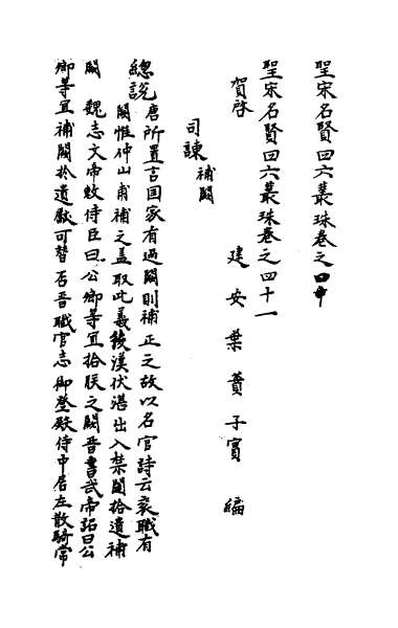 聖宋名賢四六叢珠卷之四十
聖宋名賢四六叢珠卷之四十一
建安葉蕡子實編
賀啓
司諫補闕
總説唐所置言国家有過闕則補正之故以名官詩云衮職有
闕惟仲山甫補之蓋取此義後漢伏湛出入禁闥拾遺補
闕魏志文帝敕侍臣曰公卿等宜拾朕之闕晋書武帝詔曰公
卿等宜補闕拾遺獻可替否晋職官志御登殿侍中居左散騎常